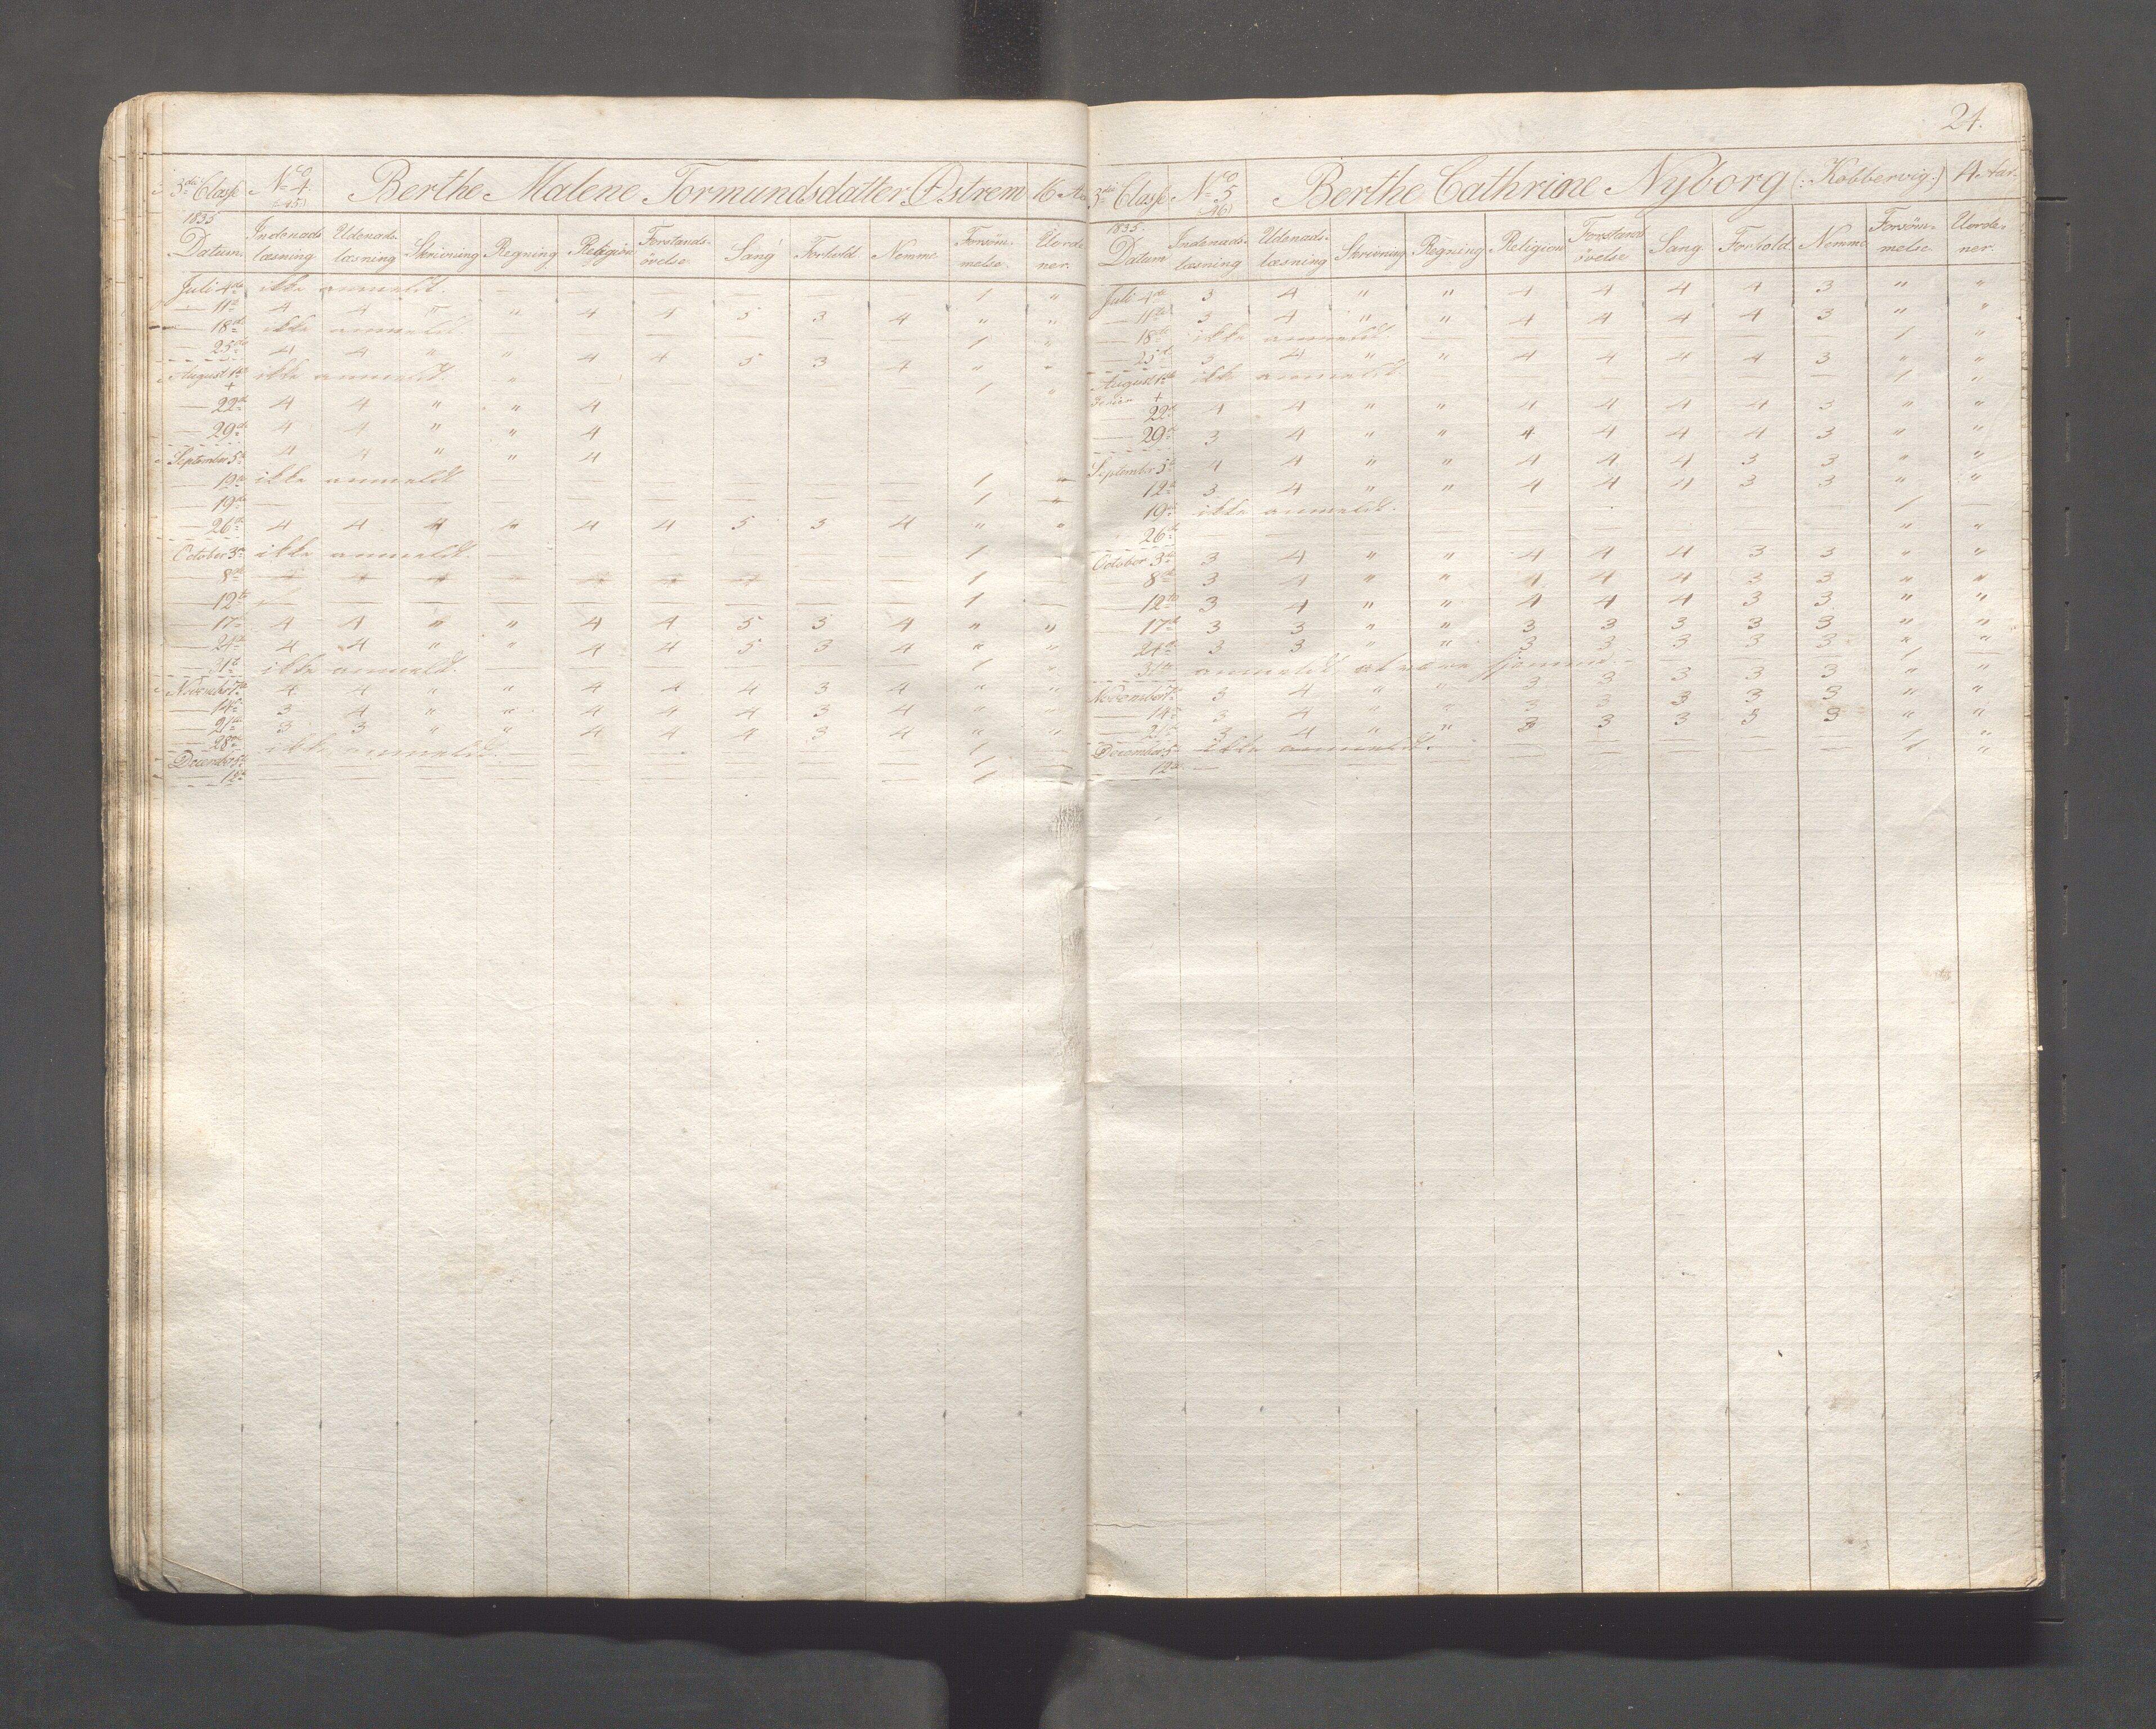 3die Classe No 4. Berthe Malene Tormundsdatter Østrem 16 Aa
(45)
1835
Datum Indenads læsning Udenads læsning Skrivning Regning Religion Forstands-övelse Sang Forhold Nemme Forsöm-melse Uorde ner
Juli 4de ikke anmeldt. — — — — — — 1 "
— 11te 4 4 " " 4 4 5 3 4 " "
— 18de ikke anmeldt. — — — — — — 1 "
— 25de 4 4 " " 4 4 5 3 4 " "
August 1ste ikke anmeldt. — — — — — — 1 "
+
— 22de 4 4 " " 4
— 29de 4 4 " " 4
September 5te 4 4 " " 4
— 19de ikke anmeldt — — — — — — 1 "
— 19de — — — — — — 1 "
— 26de 4 4 4 4 4 4 5 3 4 " "
October 3die ikke anmeldt — — — — — — 1 —
— 8de 4 4 4 — 4 4 4 — — 1 —
— 12te — — — — — — — — — 1 —
— 17de 4 4 " " 4 4 5 3 4 " "
— 24de 4 4 " " 4 4 5 3 4 " "
— 31te ikke anmeldt. — — — — — — 1 "
November 7de 4 4 " " 4 4 4 3 4 " "
— 14de 3 4 " " 4 4 4 3 4 " "
— 21de 3 3 " " 4 4 4 3 4 " "
— 28de ikke anmeldt. — — — — — — 1 —
December 5te — — — — — — — — — 1 —
— 12te — — — — — — — — — 1 —
21.
3die Classe No 5 Berthe Cathrine Nyborg (: Kobbervig :) 14 Aar.
(46)
1835.
Datum Indenads-læsning Udenads-læsning Skrivning Regning Religion Forstands övelse Sang Forhold Nemme Forsöm-melse Uorde-ner.
Juli 4de 3 4 " " 4 4 4 4 3 " "
— 11te 3 4 " " 4 4 4 4 3 " "
— 18de ikke anmeldt. — — — — — — 1 "
— 25de 3 4 " " 4 4 4 4 3 " "
August 1ste ikke anmeldt — — — — — — 1 "
Ferier +
22de 4 4 " " 4 4 4 4 3 " "
— 29de 3 4 " " 4 4 4 4 3 " "
September 5te 4 4 " " 4 4 4 3 3 " "
12te 3 4 " " 4 4 4 3 3 " "
19de ikke anmeldt. — — — — — — 1 —
26de — — — — — — — — — " "
October 3die 3 4 " " 4 4 4 3 3 " "
8de 3 4 " " 4 4 4 3 3 " "
— 12te 3 4 " " 4 4 4 3 3 " "
— 17de 3 3 " " 3 3 3 3 3 " "
— 24de 3 3 " " 3 3 3 3 3 " "
— 31te anmeldt at være — — — — 1 —
November 7de 3 4 " " 3 3 3 3 3 " "
— 14de 3 4 " " 3 3 3 3 3 " "
— 21de 3 4 " " 3 3 3 3 3 " "
December 5te ikke anmeldt. — — — — — — 1 "
— 12te — — — — — — — — — 1 "